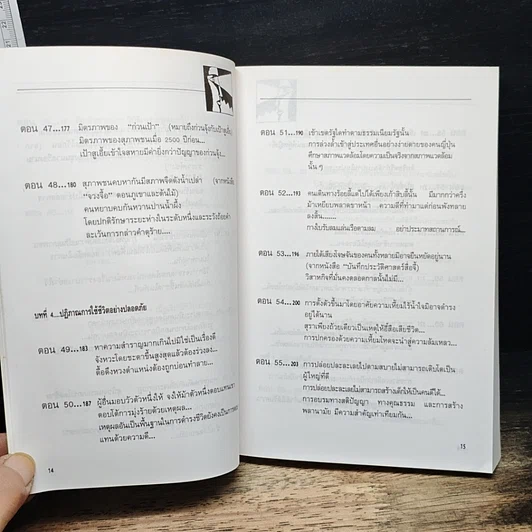 ตอน 47...177 มิตรภาพของ "ก่วนเป้า" (หมายถึงก่วนจุ้งกับเป้าสูเอี๋ย
มิตรภาพของสุภาพชนเมื่อ 2500 ปีก่อน...
เป้าสูเอี๋ยเข้าใจสหายมีค่ายิ่งกว่าปัญญาของก่วนจุ้ง...
ตอน 48...180 สุภาพชนคบหากันมีสภาพจืดดังน้ำเปล่า (จากหนังสือ
"จวงจื้อ" ตอนภูเขาและต้นไม้)
คนหยาบคบกันหวานปานน้ำผึ้ง
โดยปกติรักษาระยะห่างในระดับหนึ่งและระวังถ้อยคำ
ละเว้นการกล่าวคำดุร้าย....
บทที่ 4...ปฏิภาณการใช้ชีวิตอย่างปลอดภัย
ตอน 49...183 หาความสำราญมากเกินไปมิใช่เป็นเรื่องดี
จังหวะโดยชะตาขึ้นสูงสุดแล้วต้องร่วงลง...
ดื้อดึงหวงตำแหน่งต้องถูกบ่อนทำลาย...
ตอน 50...187 ผู้อื่นมอบวัวตัวหนึ่งให้ จงให้ม้าตัวหนึ่งตอบแทนเขา
ตอบโต้การมุ่งร้ายด้วยเหตุผล...
เหตุผลอันเป็นพื้นฐานในการดำรงชีวิตยังคงเป็นการตอบ
แทนด้วยความดี...
14
ตอน 51...190 เข้าเขตรัฐใดทำตามธรรมเนียมรัฐนั้น
การล่วงล้ำเข้าสู่ประเทศอื่นอย่างง่ายดายของคนญี่ปุ่น
ศึกษาสภาพแวดล้อมโดยความเป็นจริงจากสภาพแวดล้อม
นั้น ๆ
ตอน 52...193 คนเดินทางร้อยลี้แต่ไปได้เพียงเก้าสิบลี้นั้น มีมากกว่าครึ่ง
ม้าเหยียบพลาดขาหน้า ความดีที่ทำมาแต่ก่อนพังทลาย
ลงสิ้น.......
กางใบรับลมแล่นเรือตามลม อย่าประมาทสถานการณ์...
ตอน 53...196 ภายใต้เสียงโจษจันของคนทั้งหลายมิอาจยืนหยัดอยู่นาน
(จากหนังสือ "บันทึกประวัติศาสตร์สื่อจี้)
วิสาหกิจที่มั่นคงตลอดกาลนั้นไม่มี...
ตอน 54...200 การตั้งตัวขึ้นมาโดยอาศัยความเหี้ยมไร้น้ำใจมิอาจดำรง
อยู่ได้นาน
สุราเพียงถ้วยเดียวเป็นเหตุให้อี้สื่อเสียชีวิต...
การปกครองด้วยความเหี้ยมโหดจะนำสู่ความล้มเหลว...
ตอน 55...203 การปล่อยปละละเลยไปตามสบายไม่สามารถเติบโตเป็น
ผู้ใหญ่ที่ดี
การปล่อยปละละเลยไม่สามารถสร้างเด็กให้เป็นคนดีได้...
การอบรมทางสติปัญญา ทางคุณธรรม และการสร้าง
พลานามัย มีความสำคัญเท่าเทียมกัน...
15